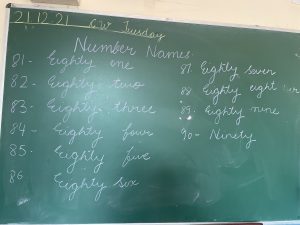 21.12.21 C.W Tuesday
Number Names
81- Eighty one
82- Eighty two
83- Eighty three
84- Eighty four
85- Eighty five
86 Eighty six
87 Eighty seven
88 Eighty eight
89- Eighty nine
90- Ninety